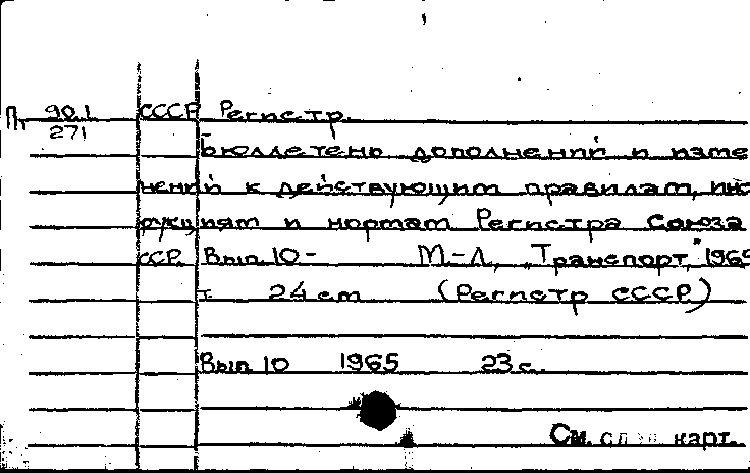 П 90.1 СССР Регистр.
271
Бюллетень дополнений и изме
нений к действующим правилам, инс
рукциям и нормам Регистра Союза
ССР. Вып. 10- М.-Л., „Транспорт," 1965
т. 24 см (Регистр СССР)
Вып. 10 1965 23 с.
См. след. карт.